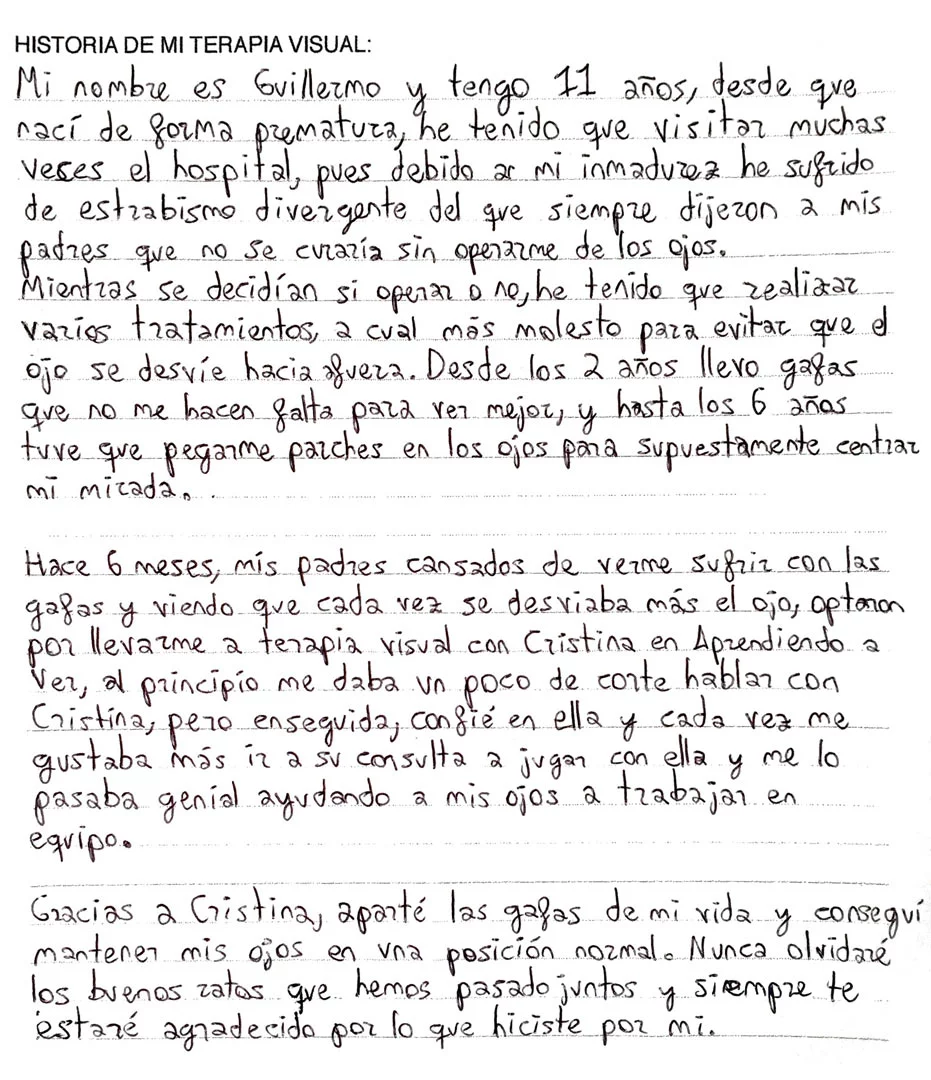 HISTORIA DE MI TERAPIA VISUAL:
Mi nombre es Guillermo y tengo 11 años, desde que
nací de forma prematura, he tenido que visitar muchas
veses el hospital, pues debido a mi inmadurez he sufrido
de estrabismo divergente del que siempre dijeron a mis
padres que no se curaría sin operarme de los ojos.
Mientras se decidían si operar o no, he tenido que realizar
varios tratamientos, a cual más molesto para evitar que el
ojo se desvíe hacia afuera. Desde los 2 años llevo gafas
que no me hacen falta para ver mejor, y hasta los 6 años
tuve que pegarme parches en los ojos para supuestamente centrar
mi mirada.
Hace 6 meses, mis padres cansados de verme sufrir con las
gafas y viendo que cada vez se desviaba más el ojo, optaron
por llevarme a terapia visual con Cristina en Aprendiendo a
Ver, al principio me daba un poco de corte hablar con
Cristina, pero enseguida, confié en ella y cada vez me
gustaba más ir a su consulta a jugar con ella y me lo
pasaba genial ayudando a mis ojos a trabajar en
equipo.
Gracias a Cristina, aparté las gafas de mi vida y conseguí
mantener mis ojos en una posición normal. Nunca olvidaré
los buenos ratos que hemos pasado juntos y siempre te
estaré agradecido por lo que hiciste por mi.